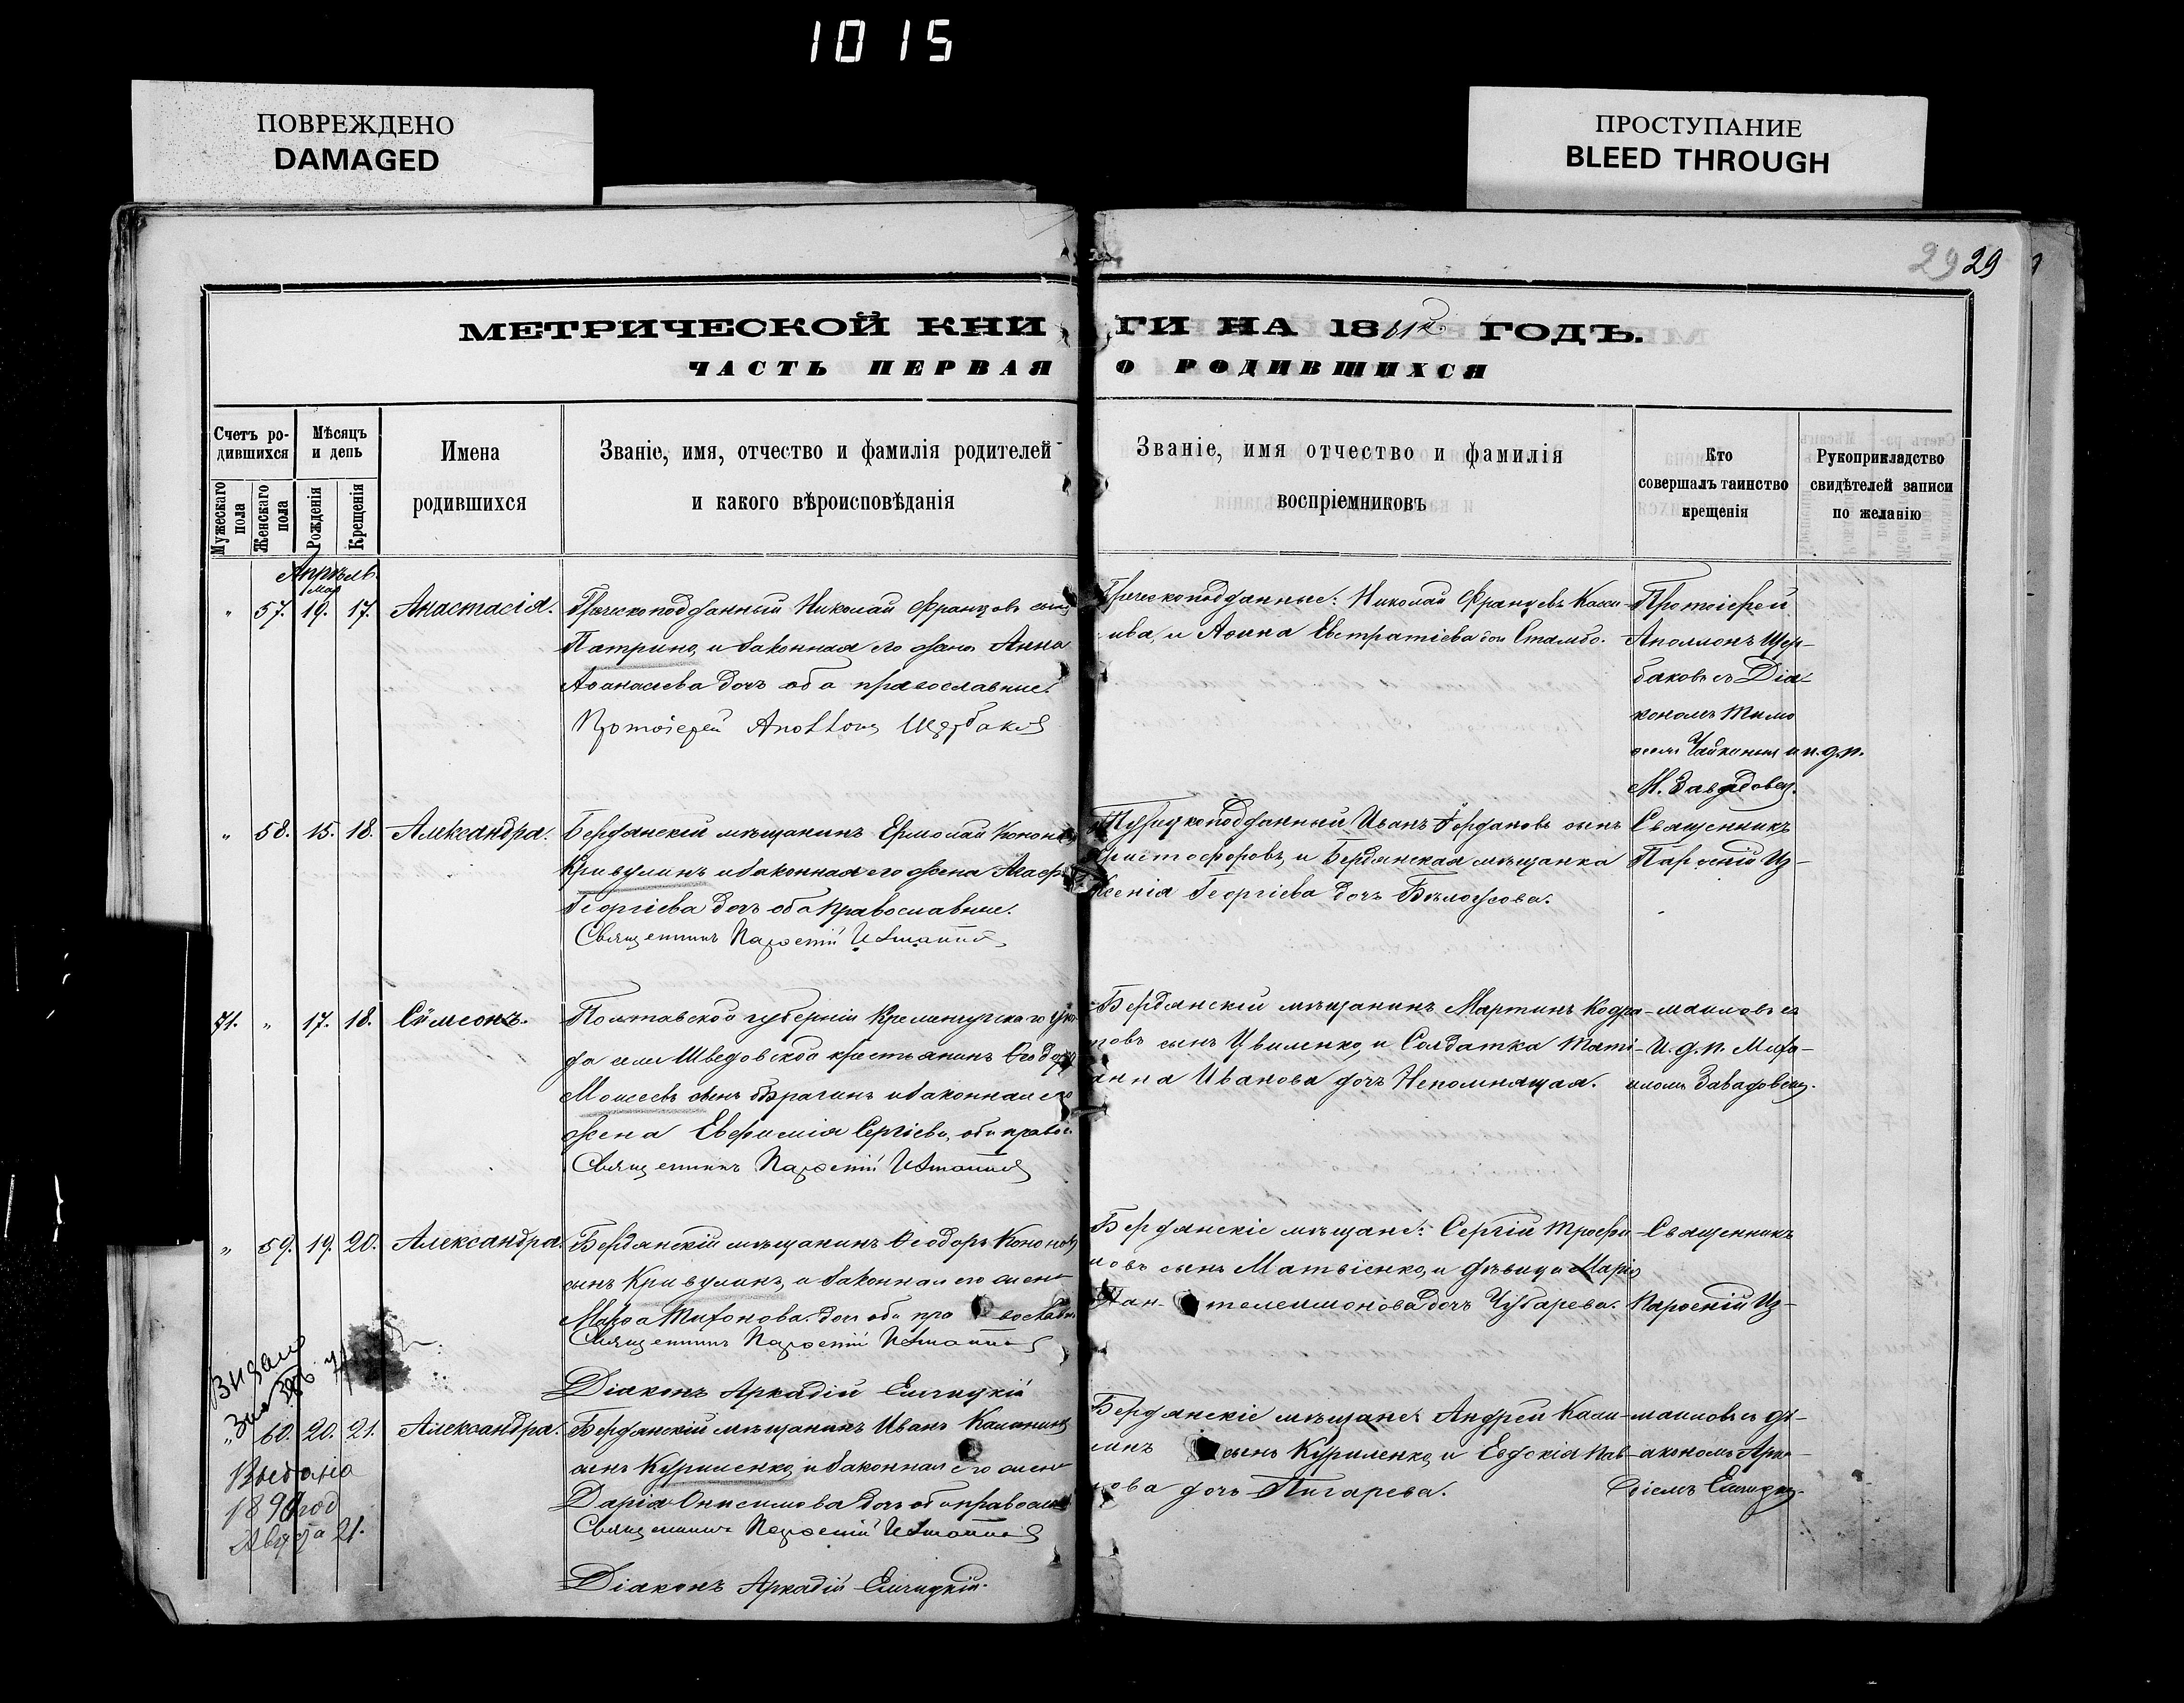 1015
ПОВРЕЖДЕНО
DAMAGED
ПРОСТУПАНИЕ
BLEED THROUGH
29 29
МЕТРИЧЕСКОЙ КНИГИ НА 18 ГОДЪ.
ЧАСТЬ ПЕРВАЯ О РОДИВШИХСЯ
Счетъ родившихся
Мужескаго пола
Женскаго пола
Мѣсяцъ и день
Рожденія
Крещенія
Имена родившихся
Званіе, имя, отчество и фамилія родителей
и какого вѣроисповѣданія
Званіе, имя отчество и фамилія
воспріемниковъ
Кто
совершалъ таинство
крещенія
Рукоприкладство
свидѣтелей записи
по желанію
Апрѣль
" 57. 19. 17. Анастасія.
Греческоподданный Николай Францовъ сынъ
Патрино, и законная его жена Анна
Аѳанасьева дочь оба православные.
Протоіерей Аполлонъ Щербаковъ
Греческоподданные: Николай Францевъ
и Анна Евстратіева доч Стамбо.
Протоіерей
Аполлонъ Щер-
баковъ съ Діа-
кономъ Тимо
и и. д. п.
М. Завадовск.
" 58. 15. 18. Александра.
Бердянскій мѣщанинъ Ермолай Кононовъ
Кривулинъ и законная его жена Агаф
Георгіева дочь оба православные.
Священникъ Парѳеній Измаиловъ
Турецкоподданный Иванъ Іордановъ сынъ
Христофоровъ, и Бердянская мѣщанка
Ксенія Георгіева дочь Бѣлоусова.
Священникъ
Парѳеній Из-
71. " 17. 18. Сѵмеонъ.
Полтавской губерніи Кременчугскаго уѣз
да села Шведовскаго крестьянинъ Ѳеодоръ
Моисеевъ сынъ Брагинъ и законная его
жена Евфимія Сергіева, оба правос.
Священникъ Парѳеній Измаиловъ
Бердянскій мѣщанинъ Мартинъ Кодра
товъ сынъ Цвиленко, и Солдатка Тати-
анна Иванова дочь Непомнящая.
маиловъ съ
И. д. п. Миха-
иломъ Завадовск.
" 59. 19. 20. Александра.
Бердянскій мѣщанинъ Ѳеодоръ Кононовъ
сынъ Кривулинъ, и законная его жена
Марѳа Тихонова доч оба православн.
Священникъ Парѳеній Измаиловъ
Діаконъ Аркадій
Бердянскіе мѣщане: Сергій Трофи
мовъ сынъ Матвіенко, и дѣвица Марія
Пантелеимонова дочь Чубарева.
Священникъ
Парѳеній Из-
" 60. 20. 21. Александра.
Бердянскій мѣщанинъ Иванъ
сынъ Куриленко, и законная его жена
Дарія Онисимова дочь оба правосл
Священникъ Парѳеній Измаиловъ
Діаконъ Аркадій
Бердянскіе мѣщане Андрей Кали-
никъ сынъ Куриленко, и Евдокія Пав-
лова дочь Пигарева.
маиловъ съ Ді-
акономъ Арка-
діемъ
Выдана
189 год
Августа 21.